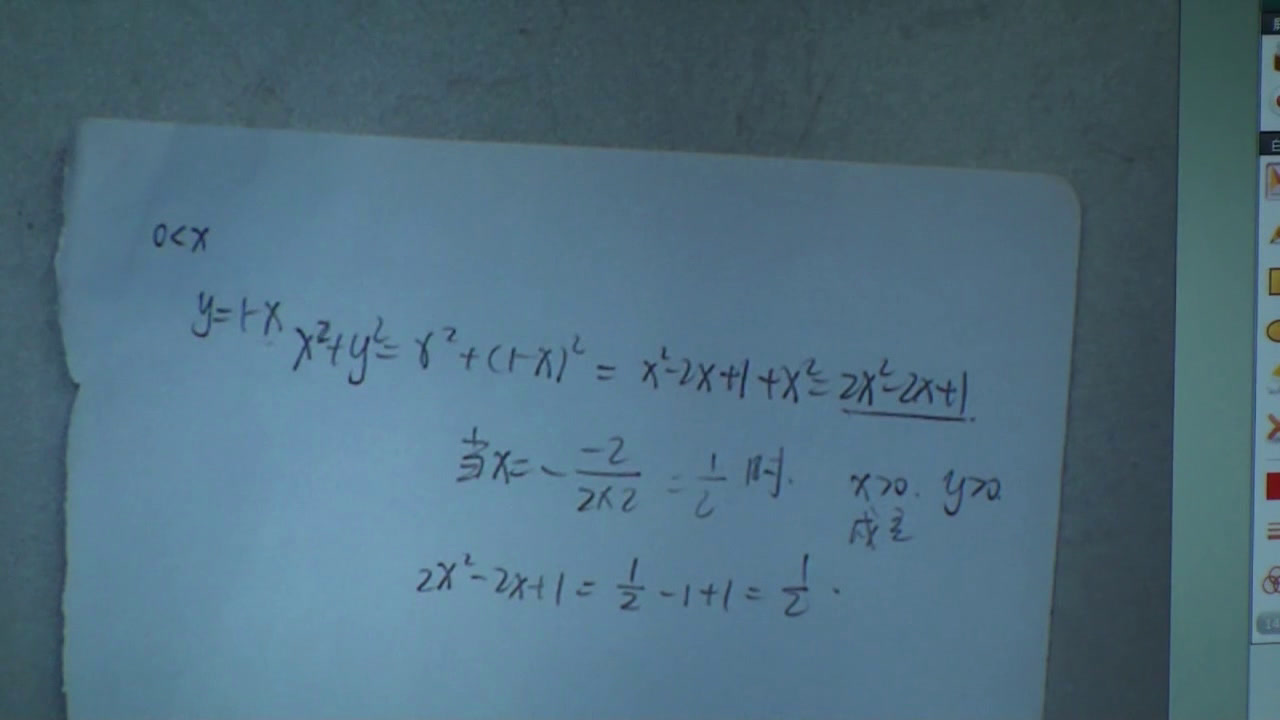 0<x
y=1-x x²+y²=x²+(1-x)²=x²-2x+1+x²=2x²-2x+1
当x=-\frac{-2}{2×2}=\frac{1}{2}时. x>0. y>0
成立
2x²-2x+1=\frac{1}{2}-1+1=\frac{1}{2}.